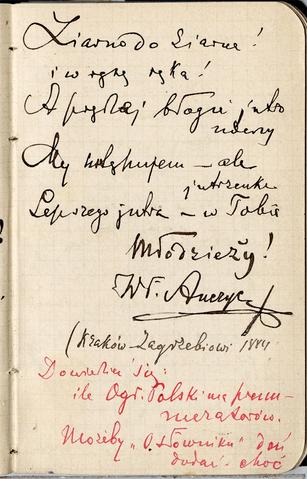 Ziarno do ziarna!
i w rękę ręka!
A prędzej błogie jutro
uderzy
My ustępujem – ale
jutrzenka
Lepszego jutra – w Tobie
Młodzieży!
Wł. Anczyc
(Kraków – Zagrzebiowi 1884
Dowiedzieć się:
ile Ogr. Polski ma prenu-
meratorów.
Możeby „O Słowniku" dać
dodać – choć